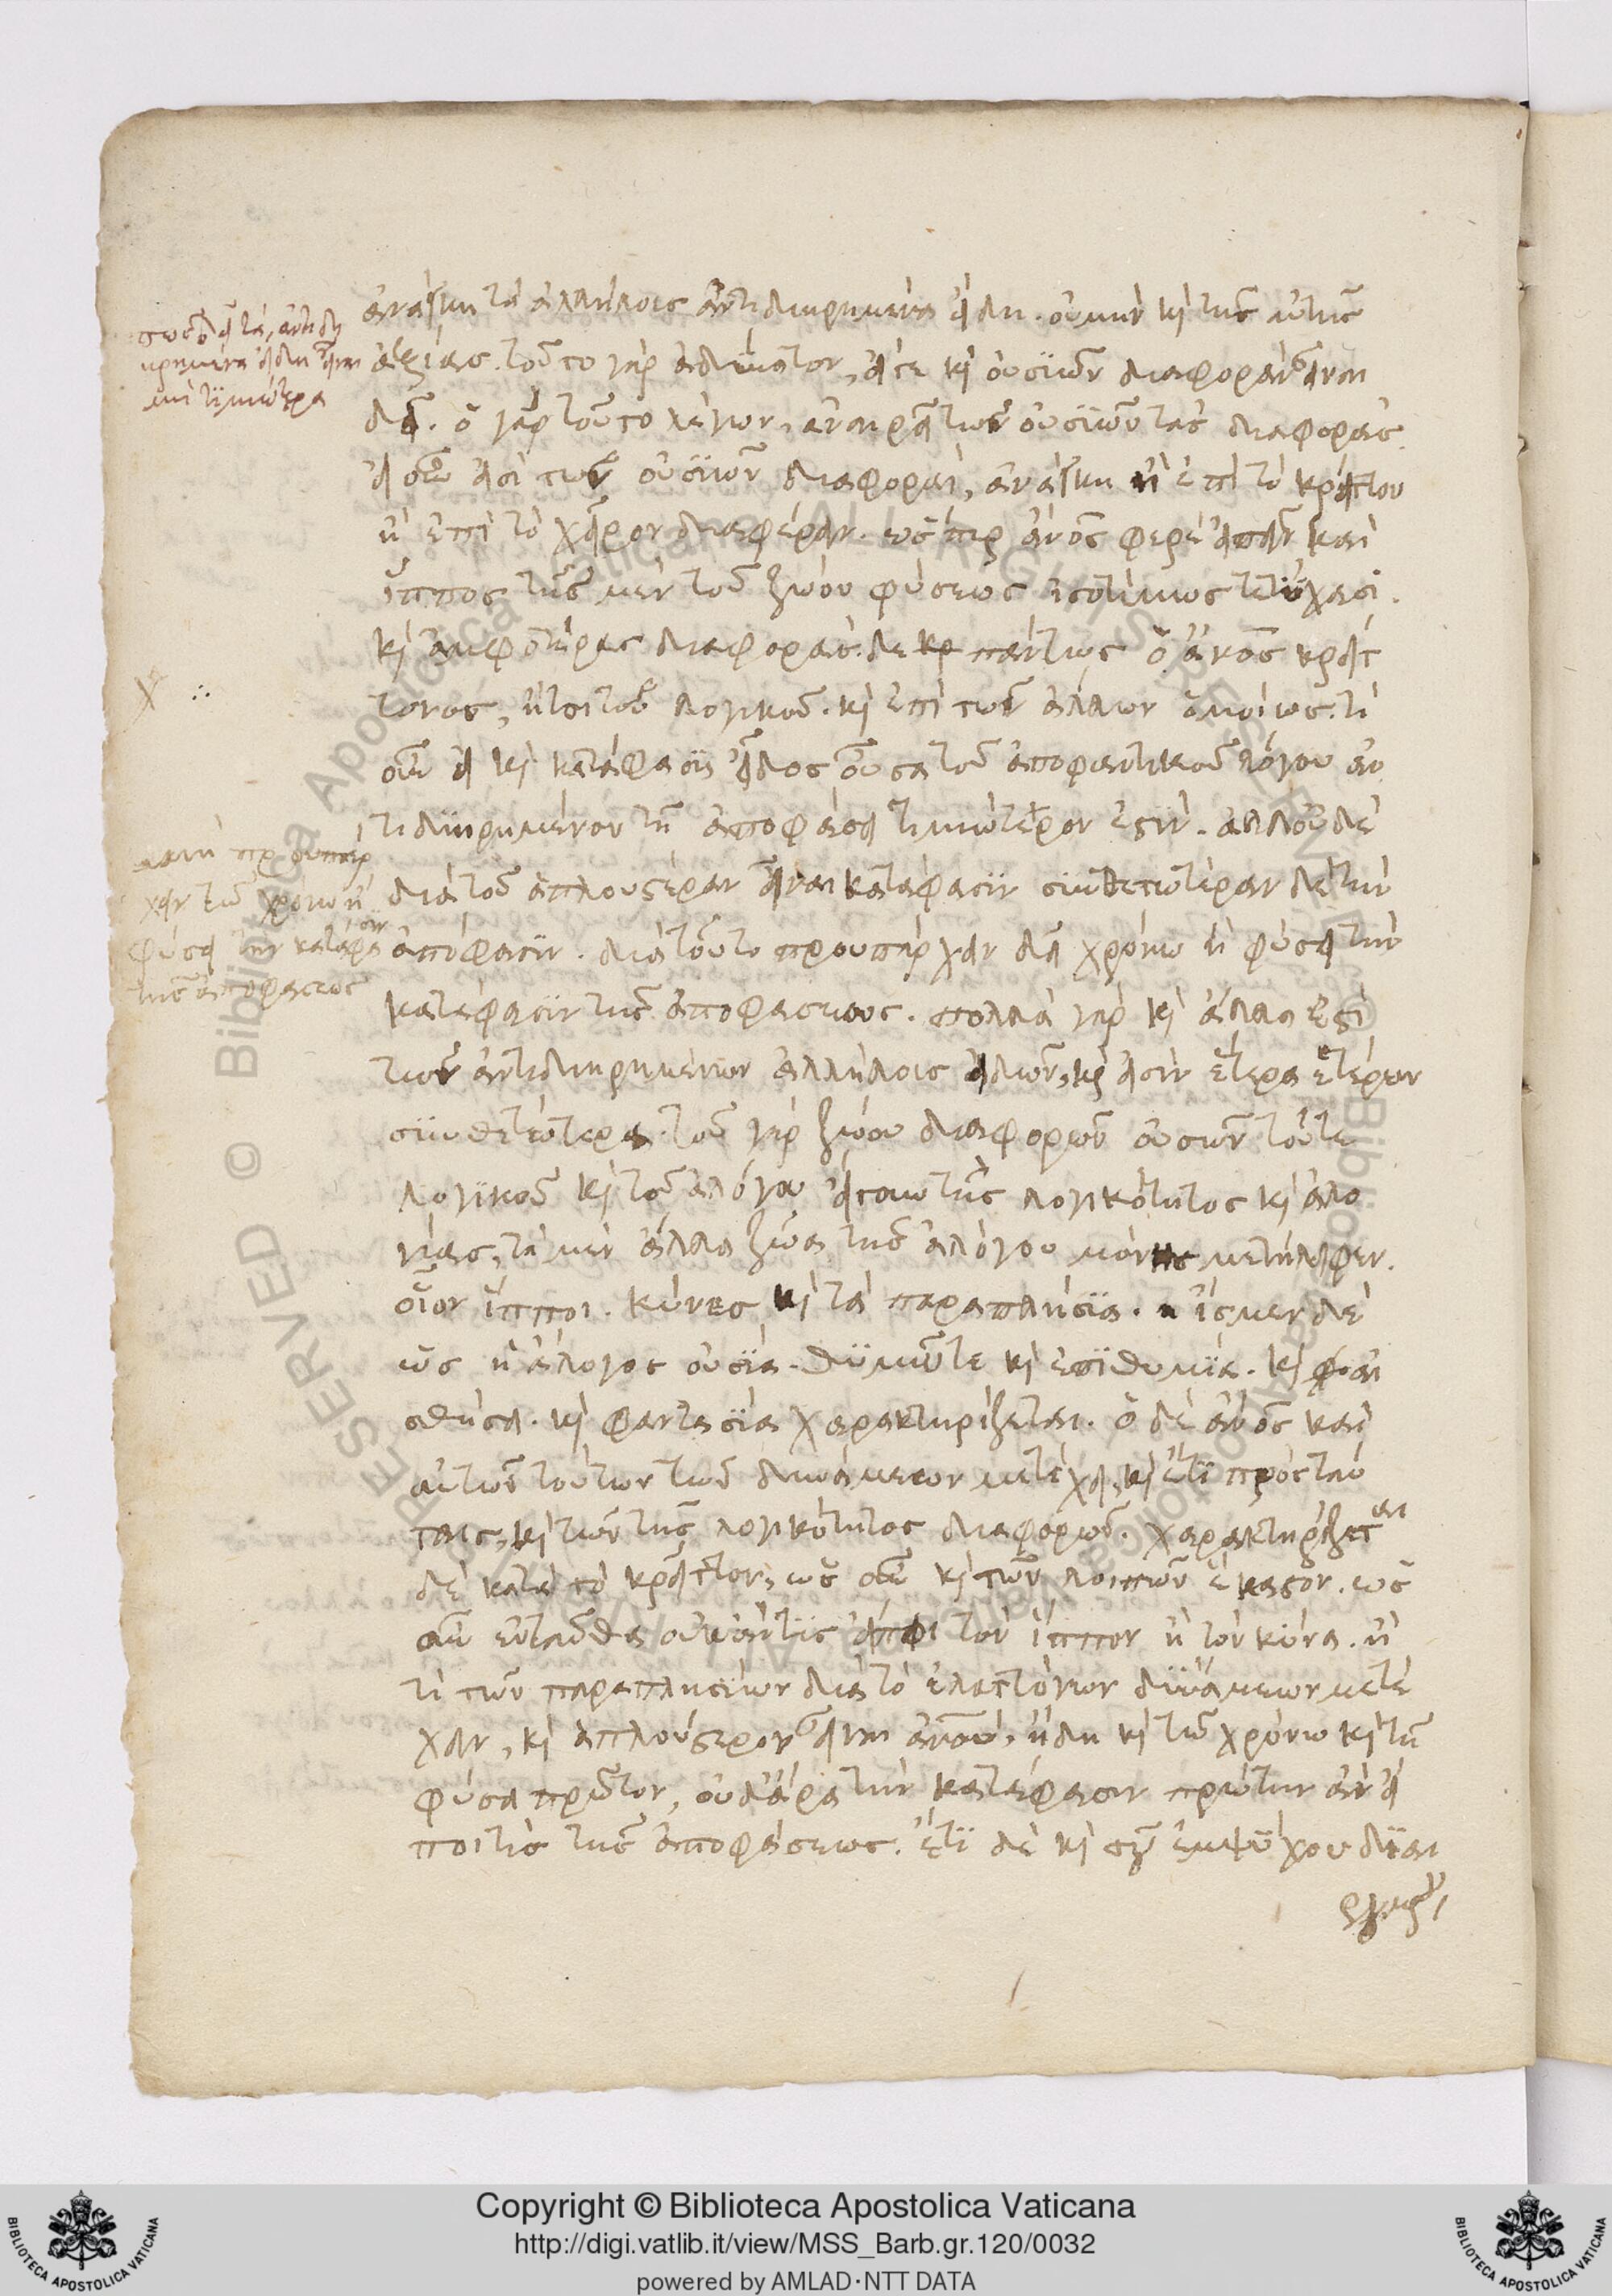 ἀνάγκη τὰ ἀλλήλοις ἀντιδιηρημένα εἴδη. οὐ μὴν κὶ τῆς αὐτῆς
ἀξίας. τοῦτο γὰρ ἀδύνατον, εἴτε κὶ οὐσιῶν διαφορὰν εἶναι
δεῖ. ὁ γὰρ τοῦτο λέγων, ἀναιρεῖ τῶν οὐσιῶν τὰς διαφοράς.
εἰ οὖν εἰσὶ τῶν οὐσιῶν διαφοραὶ, ἀνάγκη ἢ ἐπὶ τὸ κρεῖττον
ἢ ἐπὶ τὸ χεῖρον διαφέρειν. ὥσπερ ἄνος φέρε εἰπεῖν καὶ
ἵππος τῆς μὲν τοῦ ζώου φύσεως ἰσοτίμως τετύχασι.
κὶ ἀμφότερας διαφορᾶς δὲ πάντως ὁ ἄνος κρείτ
τονος, ἤτοι τοῦ λογικοῦ. κὶ ἐπὶ τῶν ἄλλων ὁμοίως. τί
οὖν εἰ κὶ κατάφασις εἶδος οὖσα τοῦ ἀποφαντικοῦ λόγου ἀν
τιδιηρημένον τῇ ἀποφάσει τιμιώτερον ἐστίν. ἀλλ' οὐδὲ
διὰ τοῦ ἁπλουστέραν εἶναι κατάφασιν συνθετωτέραν δὲ τὴν
ἀπόφασιν. διὰ τοῦτο προυπάρχειν δεῖ χρόνω ἢ φύσει τὴν
κατάφασιν τῆς ἀποφάσεως. πολλὰ γὰρ κὶ ἄλλα ἐστὶ
τῶν ἀντιδιηρημένων ἀλλήλοις εἰδῶν, κὶ εἰσὶν ἕτερα ἑτέρων
συνθετώτερα. τοῦ γὰρ ζώου διαφορῶν οὐσῶν τοῦ τε
λογικοῦ κὶ τοῦ ἀλόγου εἴτουν τῆς λογικότητος κὶ ἀλο
γίας, τὰ μὲν ἄλλα ζῶα τῆς ἀλόγου μόνης μετείληφεν.
οἷον ἵπποι. κύνες κὶ τὰ παραπλήσια. ἴσμεν δὲ
ὡς ἡ ἄλογος οὐσία. θυμῶ τε κὶ ἐπιθυμία. κὶ
αἰσθήσει. κὶ φαντασία χαρακτηρίζεται. ὁ δὲ ἄνος καὶ
αὐτῶν τούτων τῶν δυνάμεων μετέχει, κὶ ἔτι πρὸς ταύ
ταις, κὶ τῶν τῆς λογικότητος διαφορῶν. χαρακτηρίζεται
δὲ κατὰ τὸ κρεῖττον, ὡς οὖν κὶ τῶν λοιπῶν ἕκαστον. ὡς
οὖν ἐνταῦθα οὐκ ἄν τις εἴποι τὸν ἵππον ἢ τὸν κύνα. ἢ
τι τῶν παραπλησίων διὰ τὸ ἐλαττόνων δυνάμεων μετέ
χειν, κὶ ἁπλούστερον εἶναι ἀνου, ἤδη κὶ τῶ χρόνω κὶ τῆ
φύσει πρῶτον, οὐδ' ἄρα τὴν κατάφασιν πρώτην ἂν εἴ
ποι τις τῆς ἀποφάσεως. ἔτι δὲ κὶ ἐμψύχου
πῶς δεῖ τὰ ἀντιδιη
ρημένα εἴδη εἶναι
τιμιώτερα
προυπάρ
χειν τῶ χρόνω ἢ
φύσει τὴν κατάφασιν
τῆς ἀποφάσεως
Copyright © Biblioteca Apostolica Vaticana
http://digi.vatlib.it/view/MSS_Barb.gr.120/0032
powered by AMLAD·NTT DATA
BIBLIOTECA APOSTOLICA VATICANA
BIBLIOTECA APOSTOLICA VATICANA